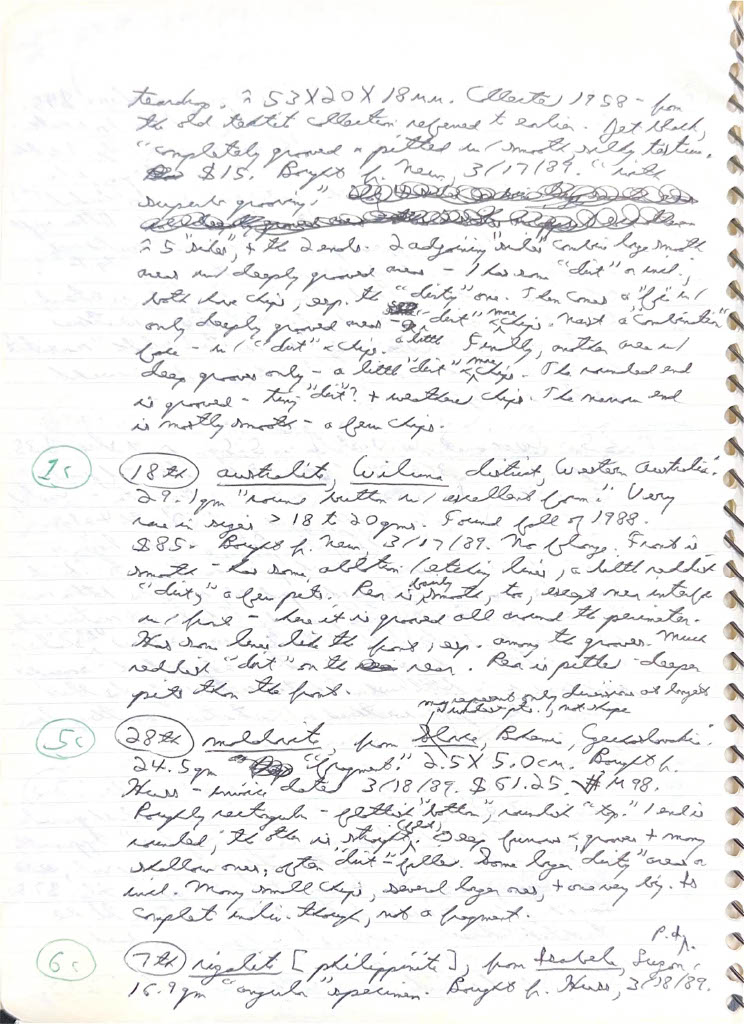 teardrop. ≈ 53 X 20 X 18 mm. Collected 1958 - from
the old tektite collection referred to earlier. Jet black,
"completely grooved & pitted w/ smooth silky texture.
$15. Bought f. New, 3/17/89. "with
superb grooving."
≈ 5 "sides", + the 2 ends. 2 adjoining "sides" combine large smooth
areas w/ deeply grooved areas - 1 has some "dirt" or incl.,
both have chips, esp. the "dirty" one. Then comes a w/
only deeply grooved areas - "dirt" & more chips. Next a "combination"
face - w/ "dirt" & chips. Finally, another area w/
deep grooves only - a little "dirt" & more chips. The rounded end
is grooved - tiny "dirt"? + weathered chips. The narrow end
is mostly smooth - a few chips.
1c 18th australite, Wiluna district, Western Australia.
29.1 gm "round button w/ excellent form." Very
rare in sizes > 18 to 20 gms. Found fall of 1988.
$85 - Bought f. New, 3/17/89. No flange. Front is
smooth - has some ablation/etching lines, a little reddish
"dirt", a few pits. Rear is fairly smooth, too, except near interface
w/ front - here it is grooved all around the perimeter.
Has some lines like the front, esp. among the grooves. Much
reddish "dirt" on the rear. Rear is pitted - deeper
pits than the front.
may represent only dimensions at longest
& widest pts., not shape
5c 28th moldavite, from Slavce, Bohemia, Czechoslovakia.
24.5 gm "fragment." 2.5 X 5.0 cm. Bought f.
Huss - invoice dated 3/18/89. $61.25. # M98.
Roughly rectangular - flattish "bottom", rounded "top." 1 end is
rounded, the other is straight. Deep furrows & grooves + many
shallow ones, often "dirt"-filled. Some larger "dirty" areas or
incl. Many small chips, several larger ones, + one very big. Is
complete indiv. though, not a fragment.
P. I.
6c 7th rizalite [philippinite], from Isabela, Luzon,
16.9 gm "angular" specimen. Bought f. Huss, 3/18/89.